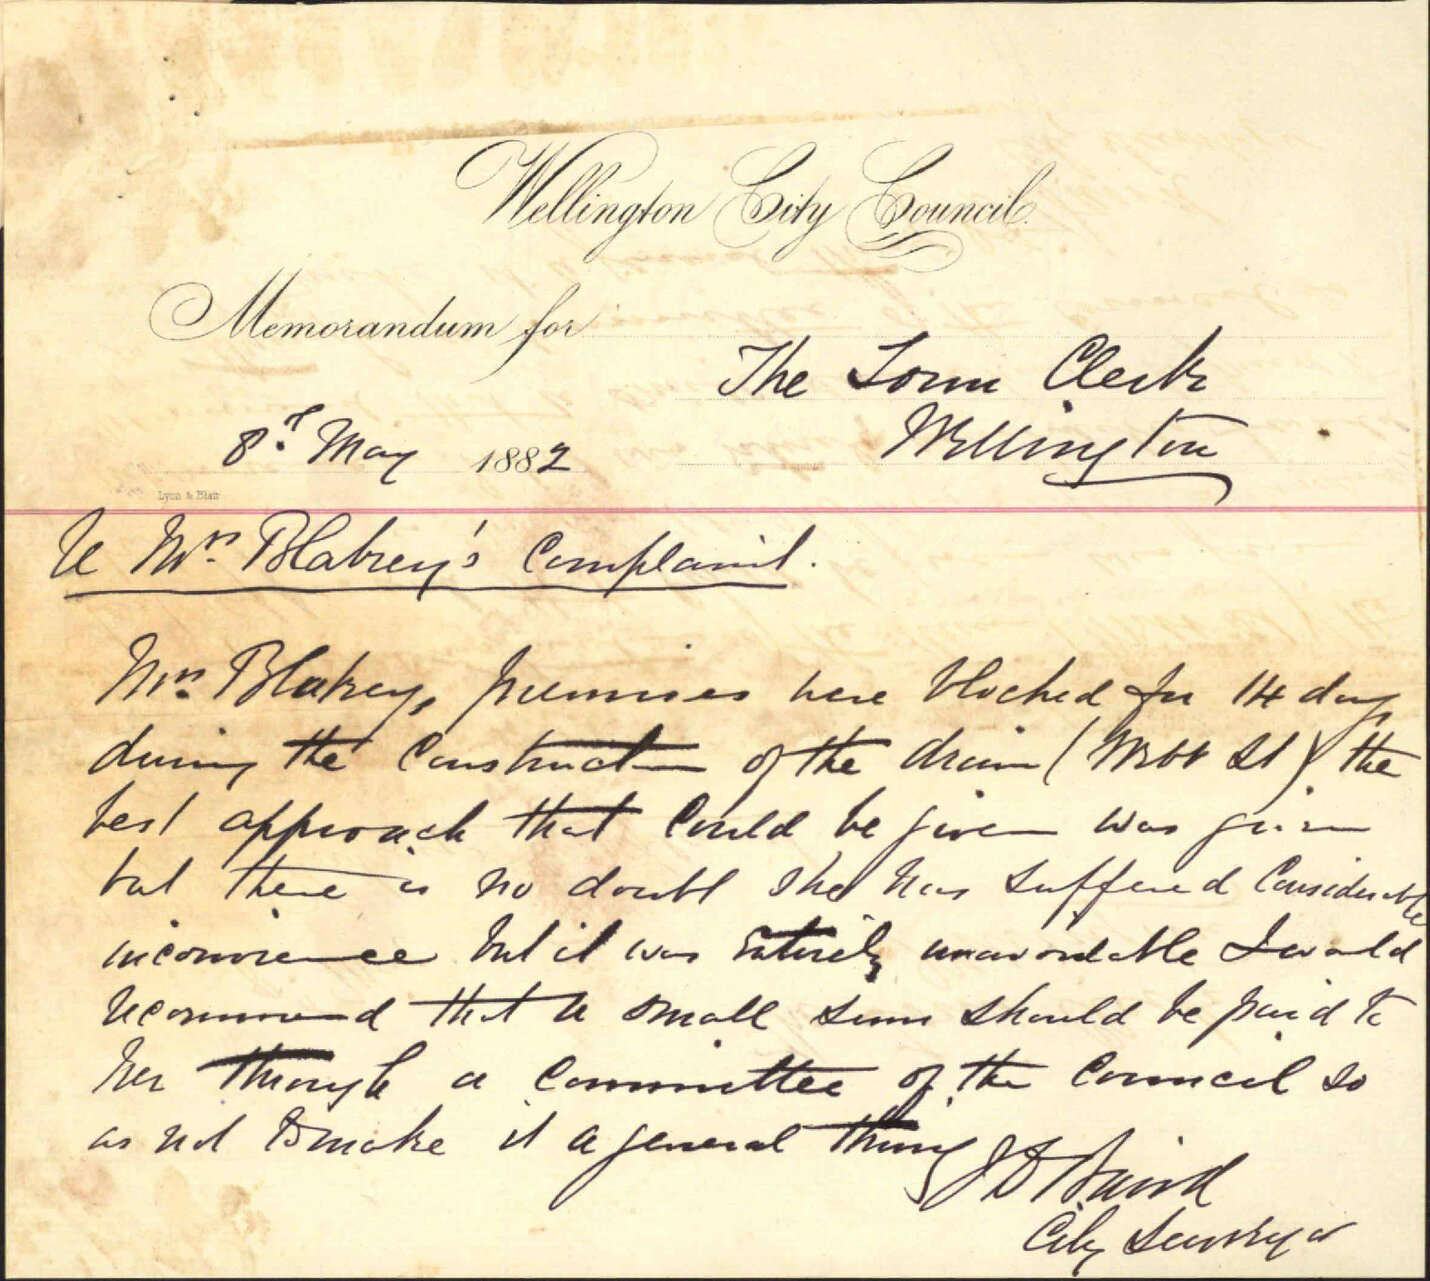 Wellington City Council.
Memorandum for
The Town Clerk
Wellington
8th May 1882
Lyon & Blair
re Mrs. Blakey's Complaint.
Mrs. Blakey, premises were blocked for 14 days
during the Construction of the drain (Webb St) the
best approach that Could be given was given
but there is no doubt she has suffered Considerable
inconvience but it was Entirely unavoidable I would
recommend that a small sum should be paid to
her through a Committee of the Council so
as not to make it a general thing
Baird
City Surveyor